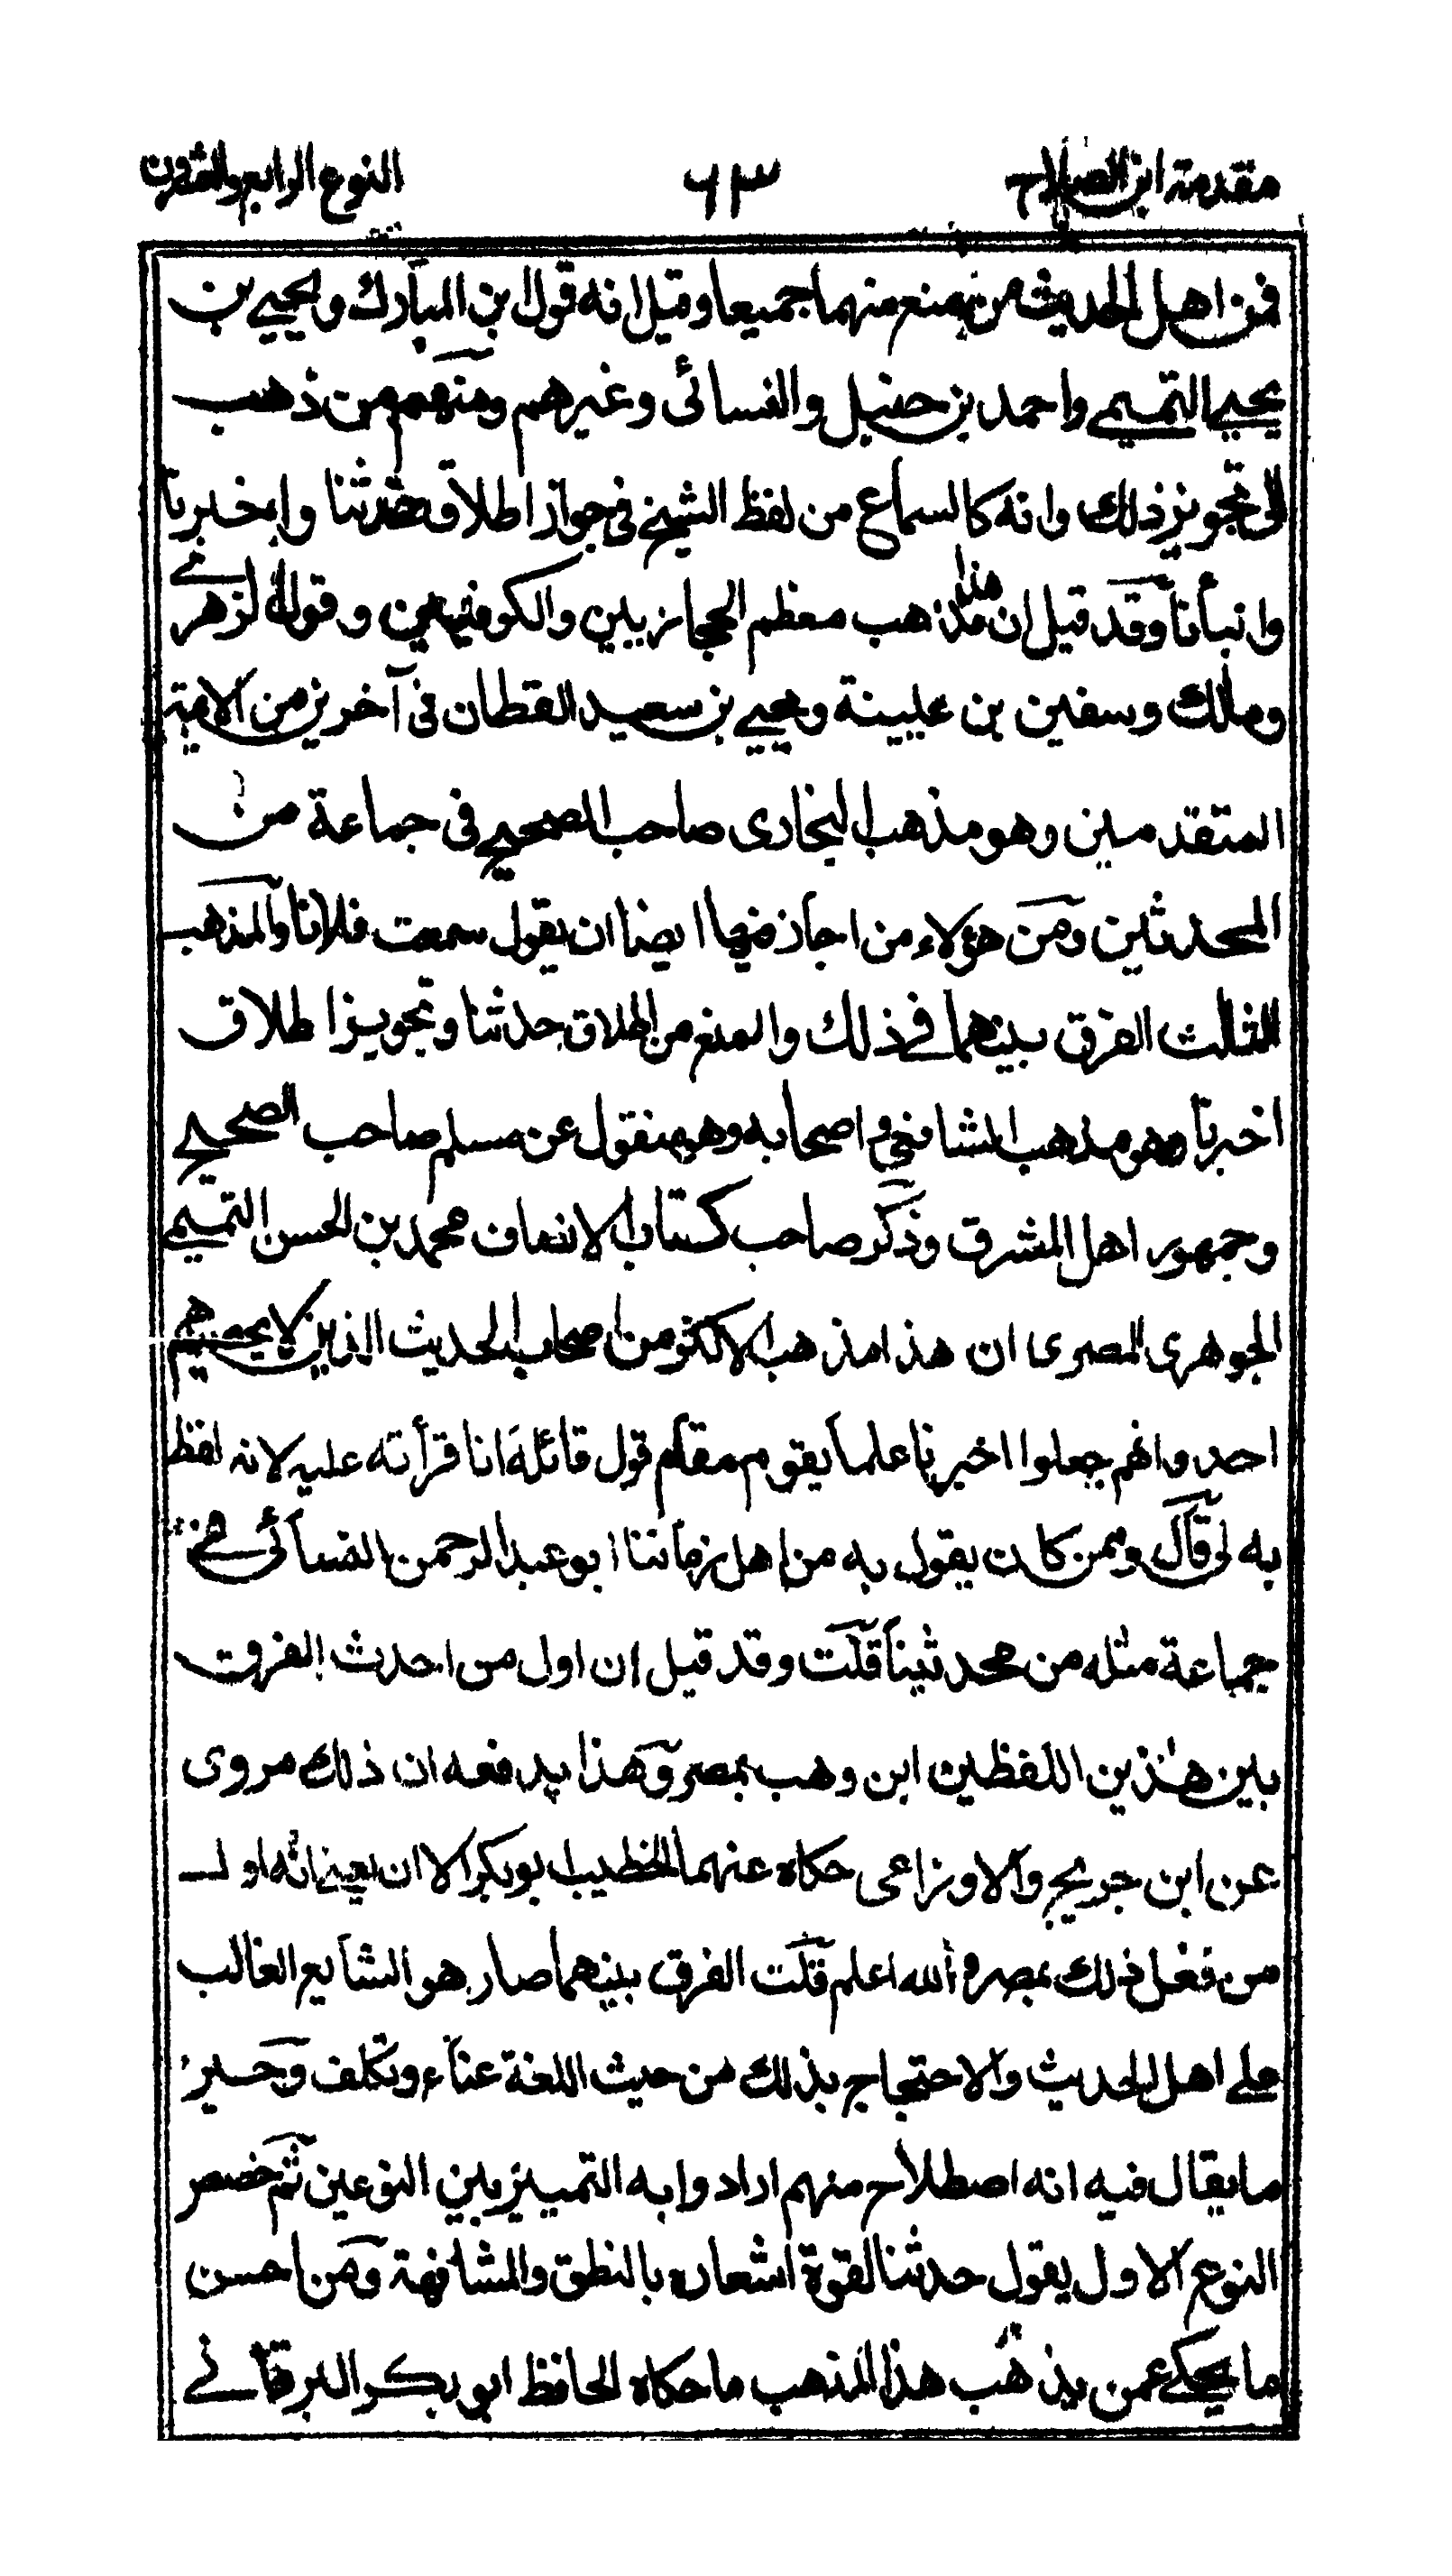 مقدمة ابن الصلاح
٦٣
النوع الرابع والعشرون
فمن اهل الحديث من منع منهما جميعا وقيل انه قول ابن المبارك ويحيي بن
يحيي التميمي واحمد بن حنبل والنسائى وغيرهم ومنهم من ذهب
الى تجويز ذلك وانه كالسماع من لفظ الشيخ فى جواز اطلاق حدثنا واخبرنا
وانبأنا وقد قيل ان هذا مذهب معظم الحجازيين والكوفيين وقول الزهرے
ومالك وسفين بن عيينة ويحيي بن سعيد القطان فى آخرين من الائمة
المتقدمين وهو مذهب البخارى صاحب الصحيح فى جماعة من
المحدثين ومن هؤلاء من اجاز فيها ايضا ان يقول سمعت فلانا والمذهب
الثالث الفرق بينهما في ذلك والمنع من اطلاق حدثنا وتجويز اطلاق
اخبرنا وهو مذهب الشافعي واصحابه وهو منقول عن مسلم صاحب الصحيح
وجمهور اهل المشرق وذكر صاحب كتاب الانصاف محمد بن الحسن التميمي
الجوهرى المصرى ان هذا مذهب الاكثر من اصحاب الحديث الذين لا يحصيهم
احد وانهم جعلوا اخبرنا علما يقوم مقام قول قائله انا قرأته عليه لانه لفظ
به لى قال وممن كان يقول به من اهل زماننا ابو عبد الرحمن النسائى في
جماعة مثله من محدثينا قلت وقد قيل ان اول من احدث الفرق
بين هذين اللفظين ابن وهب بمصر وهذا يدفعه ان ذلك مروى
عن ابن جريج والاوزاعى حكاه عنهما الخطيب ابو بكر الا ان يعني انه اول
من فعل ذلك بمصر والله اعلم قلت الفرق بينهما صار هو الشايع الغالب
على اهل الحديث والاحتجاج بذلك من حيث اللغة عناء وتكلف وخير
ما يقال فيه انه اصطلاح منهم ارادوا به التمييز بين النوعين ثم خصص
النوع الاول بقول حدثنا لقوة اشعاره بالنطق والمشافهة ومن احسن
ما يحكي عمن يذهب هذا المذهب ما حكاه الحافظ ابو بكر البرقاني